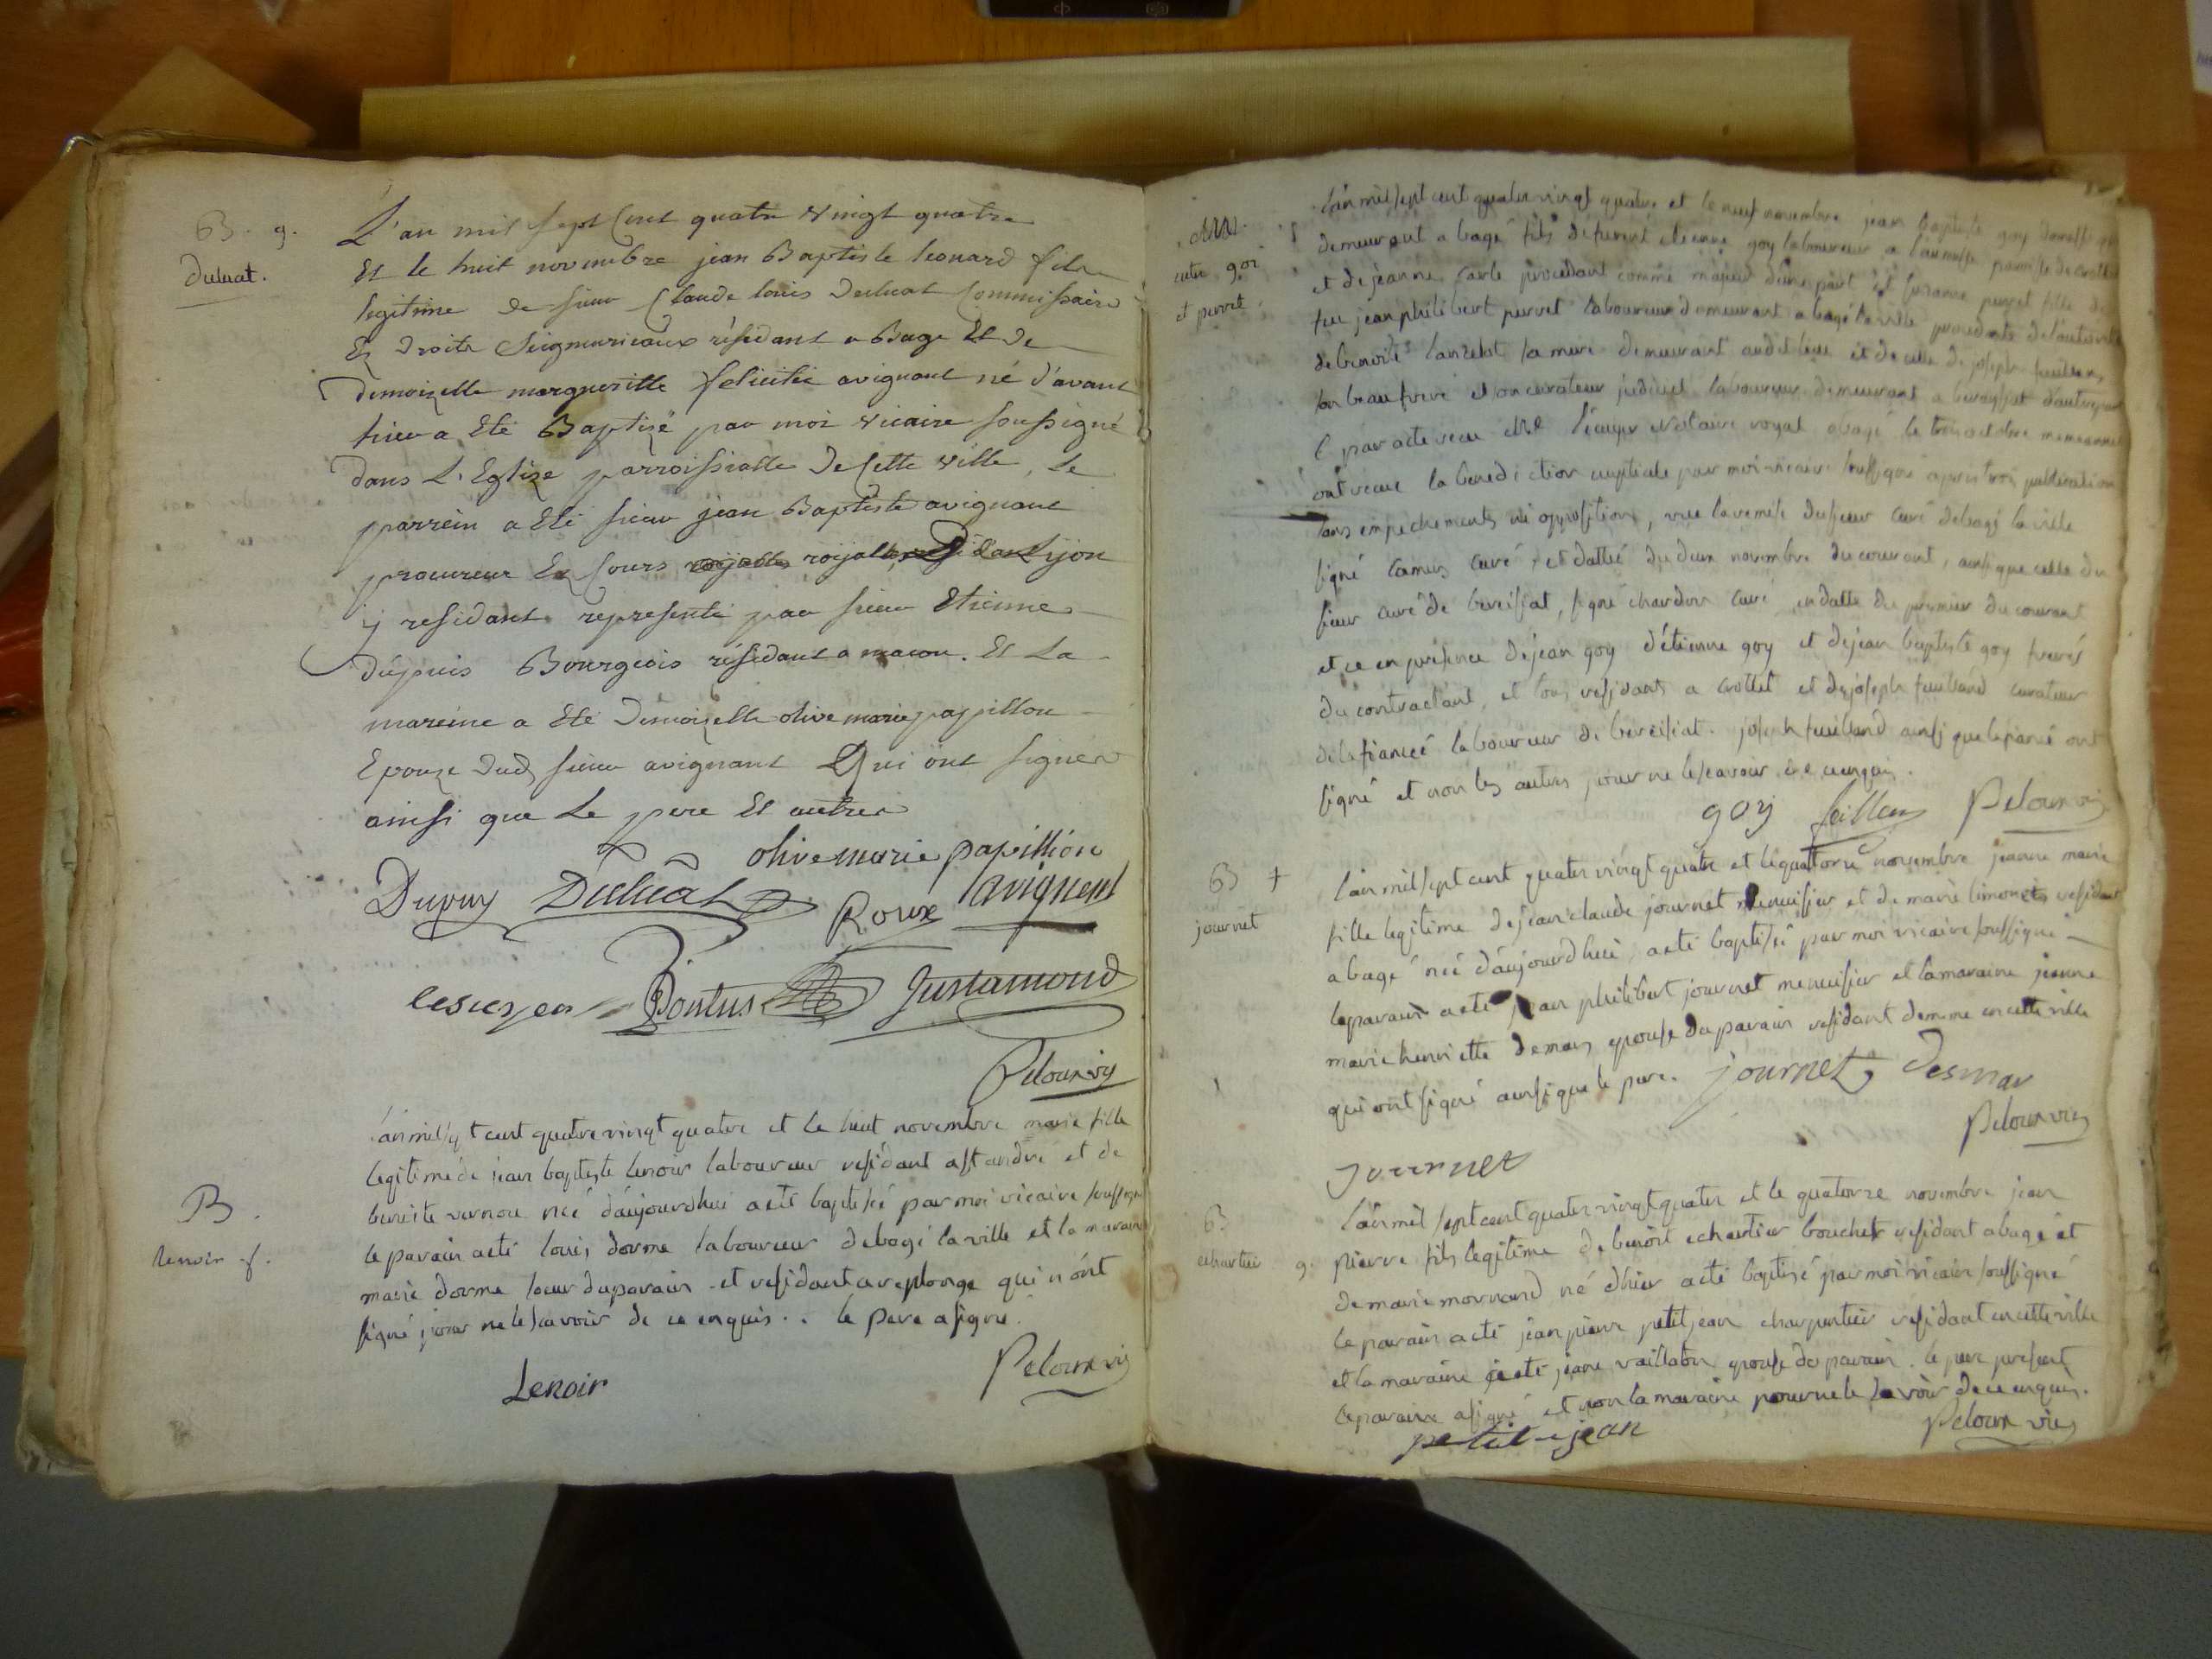 B. g.
Duluat.
L'an mil sept Cent quatre vingt quatre
Et le huit novembre jean Baptiste leonard fils
legitime de sieur Claude louis Duluat Commissaire
Es Droits Seigneuriaux résidant a Bagé Et de
Demoizelle margueritte felicitée avignant né d'avant
hier a Eté Baptizé par moi vicaire soussigné
dans L'Eglize parroissialle de Cette ville, Le
parrein a Eté sieur jean Baptiste avignant
procureur Es Cours royalle
y residant representé par sieur Etienne
dupuis Bourgeois résidant a macon. Et La
mareine a Eté Demoizelle olive marie papillon
Epouze dud sieur avignant Qui ont signér
ainsi que Le pere Et autres
olive marie papillion
Dupuy Duluat Roux avignent
Pontus Justamond
Peloux vic
B.
lenoir f.
l'an mil sept cent quatre vingt quatre et le huit novembre marie fille
legitime de jean baptiste lenoir laboureur residant a st andré et de
benoite vernou née d'aujourdhui a eté baptisée par moi vicaire soussigné
le parain a eté louis dorme laboureur de bagé la ville et la maraine
marie dorme soeur du parain et residant a replonge qui n'ont
signé pour ne le scavoir de ce enquis.. le pere a signé.
Lenoir
Peloux vic
entre goi
et perret
l'an mil sept cent quater vingt quatre et le neuf novembre jean baptiste goy
demeurant a bagé fils de furent etienne goy laboureur a paroisse de
et de jeanne carle procedant comme majeur d'une part et susanne perret fille de
feu jean philibert perret laboureur demeurant a bagé la ville procedante de l'autorité
de benoite lanzelat sa mere demeurant audit lieu et de celle de joseph
son beau frere et son curateur judiciel laboureur demeurant a bereyssiat d'autre part
par acte recu notaire royal a bagé le octobre
ont recue la benediction nuptiale par moi vicaire soussigné apres trois publications
sans empechements ni opposition, vue la remise du sieur curé de bagé la ville
signé camus curé et datteé du deux novembre du courant, ainsi que celle du
sieur curé de bereisiat, signé chardon curé en datte du premier du courant
et ce en presence de jean goy d'étienne goy et de jean baptiste goy freres
du contractant, et tous residants a crottet et de joseph curateur
de la fianceé laboureur de bereisiat. joseph ainsi que le fiancé ont
signé et non les autres pour ne le scavoir de ce enquis.
goy Peloux vic
B +
journet
l'an mil sept cent quater vingt quatre et le quattorse novembre jeanne marie
fille legitime de jean claude journet menuisier et de marie limonet residant
a bagé née d'aujourdhui, a eté baptisée par moi vicaire soussigné
le parain a eté jean philibert journet menuisier et la maraine jeanne
marie henriette demas epouse du parain residant de meme en cette ville
qui ont signé ainsi que le pere. journet Desmar
Peloux vic
Journet
B
echartier g.
l'an mil sept cent quater vingt quatre et le quatorze novembre jean
pierre fils legitime de benoit echartier boucher residant a bagé et
de marie mornand né d'hier a eté baptisé par moi vicaire soussigné
le parain a eté jean pierre petit jean charpentier residant en cette ville
et la maraine a eté jeanne vaillaton epouse du parain. le pere present
le parain a signé et non la maraine pour ne le scavoir de ce enquis.
petit jean
Peloux vic